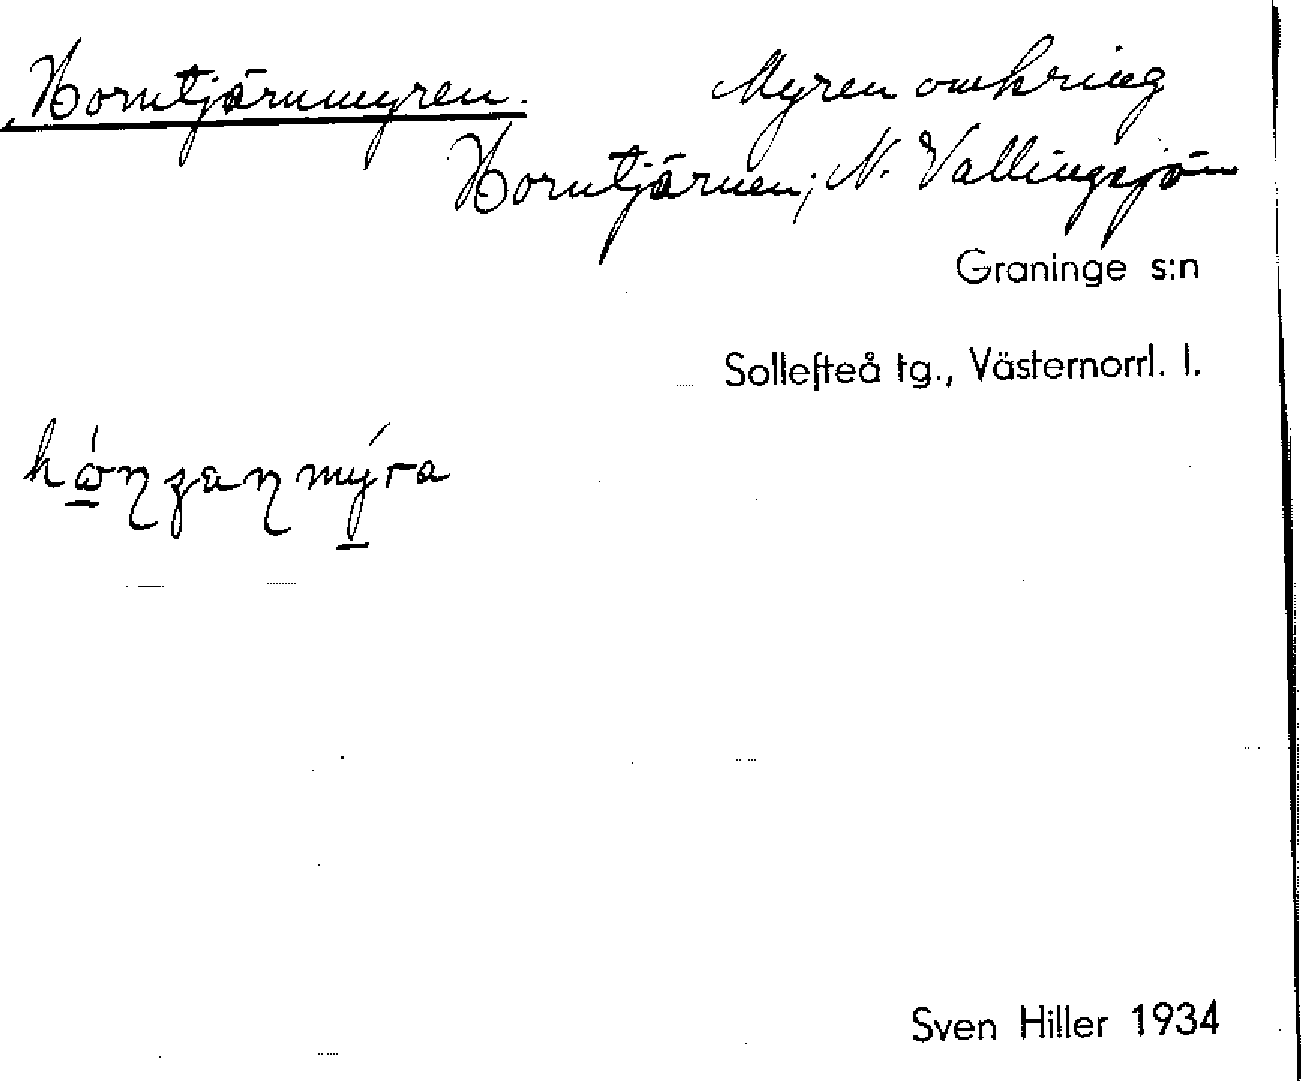 Horntjärnmyren. Myren omkring
Horntjärnen; N. Vallingsjön
Graninge s:n
Sollefteå tg., Västernorrl. l.
Sven Hiller 1934